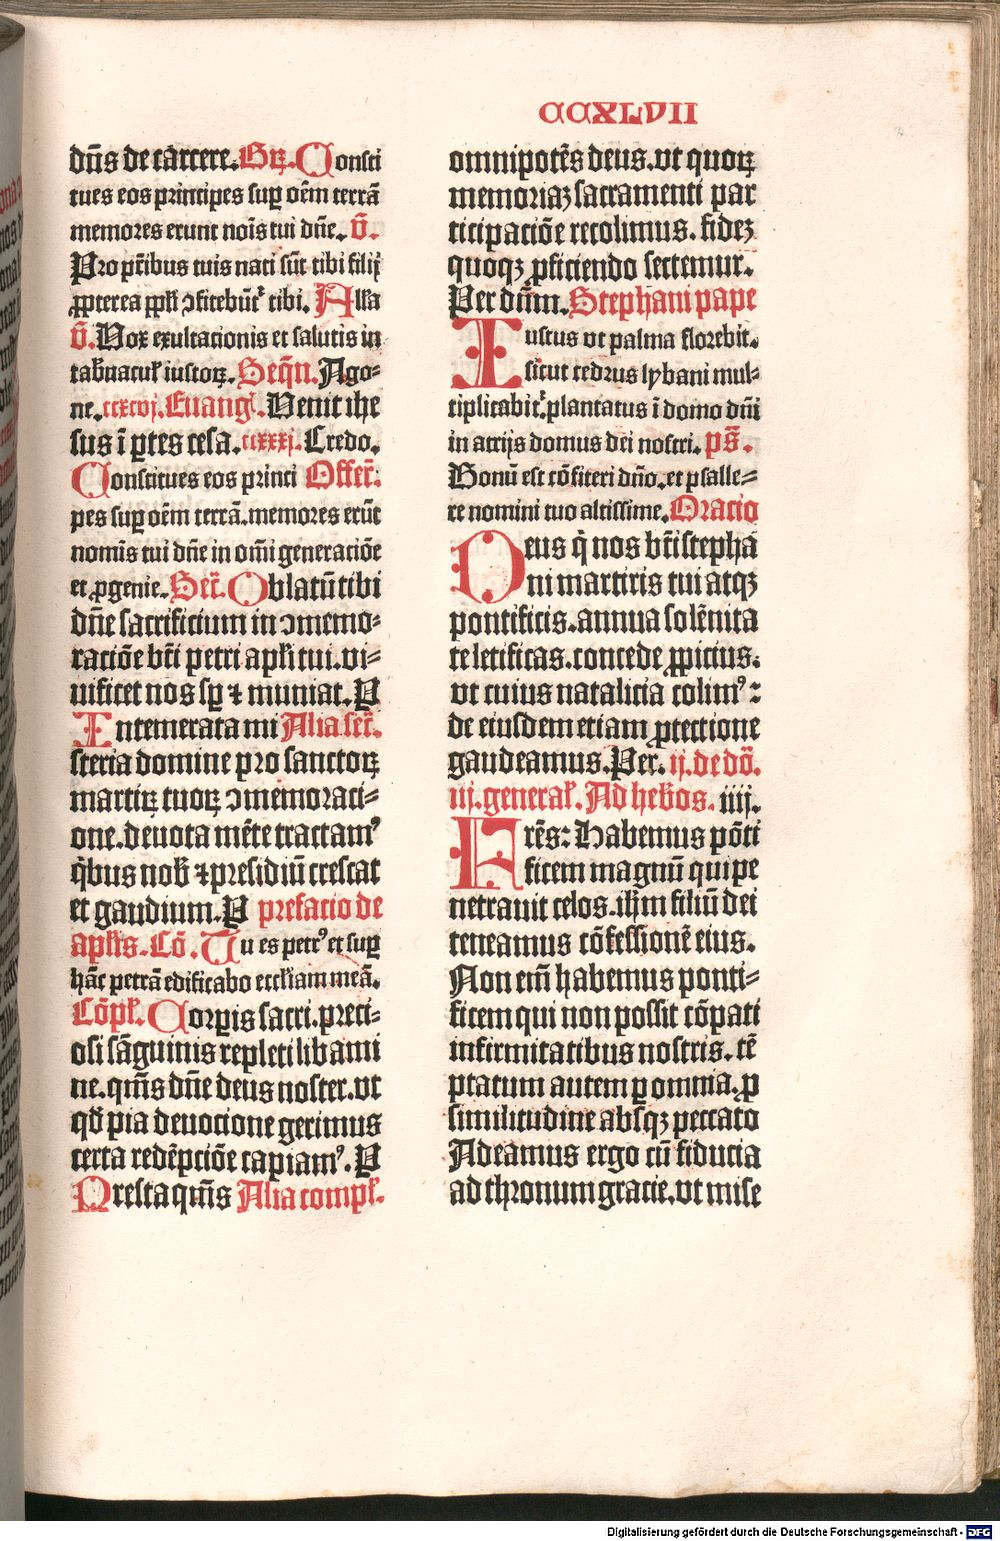 CCXLVII
dñs de carcere. Grꝫ. Consti
tues eos principes suꝑ oēm terrā
memores erunt noīs tui dñe. v̄.
Pro pr̄ibus tuis nati sūt tibi filij
ꝓpterea ppl̄i ↄfitebūtʳ tibi. Alla
v̄. Vox exultationis et salutis in
tab̄nacul̄ iustoꝝ. Seq̄n. Ago-
ne. ccxcvj. Euangl̄. Uenit ihe
sus ī ꝑtes cesa. ccxxxj. Credo.
Constitues eos princi Offer̄:
pes suꝑ oēm terrā. memores erūt
nomīs tui dñe in om̄i generatiōe
et ꝓgenie. Secr̄. Oblatū tibi
dñe sacrificium in ↄmemo-
ratiōe bt̄i petri apl̄i tui. vi-
uificet nos sꝑ ⁊ muniat. P
Intemerata mi Alia secr̄.
steria domine pro sanctoꝝ
martiꝝ tuoꝝ ↄmemoraci-
one. deuota mēte tractamꝰ
q̄bus nob̄ ⁊ presidiū crescat
et gaudium. P prefacio de
apl̄is. Cō. Tu es petrꝰ et suꝑ
hāc petrā edificabo eccl̄iam meā.
Cōpl̄. Corpis sacri. preci-
osi sāguinis repleti libami
ne. qm̄s dñe deus noster. vt
qd̄ pia deuocione gerimus
certa redēpciōe capiamꝰ. P
Presta qm̄s Alia compl̄.
omnipotēs deus. vt quoꝝ
memoriaꝫ sacramenti par
ticipaciōe recolimus. fideꝫ
quoqꝫ ꝓficiendo sectemur.
Per dn̄m. Stephani pape
Iustus vt palma florebit.
sicut cedrus lybani mul-
tiplicabitʳ. plantatus ī domo dn̄i
in atrijs domus dei nostri. ps̄.
Bonū est cōfiteri dn̄o. et psalle-
re nomini tuo altissime. Oracio
Deus q̄ nos bt̄i stepha
ni martiris tui atqꝫ
pontificis. annua solēnita
te letificas. concede ꝓpicius:
vt cuius natalicia colimꝰ:
de eiusdem etiam ꝓtectione
gaudeamus. Per. ij. de dō.
iij. general̄. Ad heb̄os. iiij.
Frēs: Habemus pōti
ficem magnū qui pe
netrauit celos. ih̄m filiū dei
teneamus cōfessionē eius.
Non em̄ habemus ponti-
ficem qui non possit cōpati
infirmitatibus nostris. tē
ptatum autem ꝑ omnia. ꝓ
similitudine absqꝫ peccato
Adeamus ergo cū fiducia
ad thronum gracie. vt mise
Digitalisierung gefördert durch die Deutsche Forschungsgemeinschaft - DFG